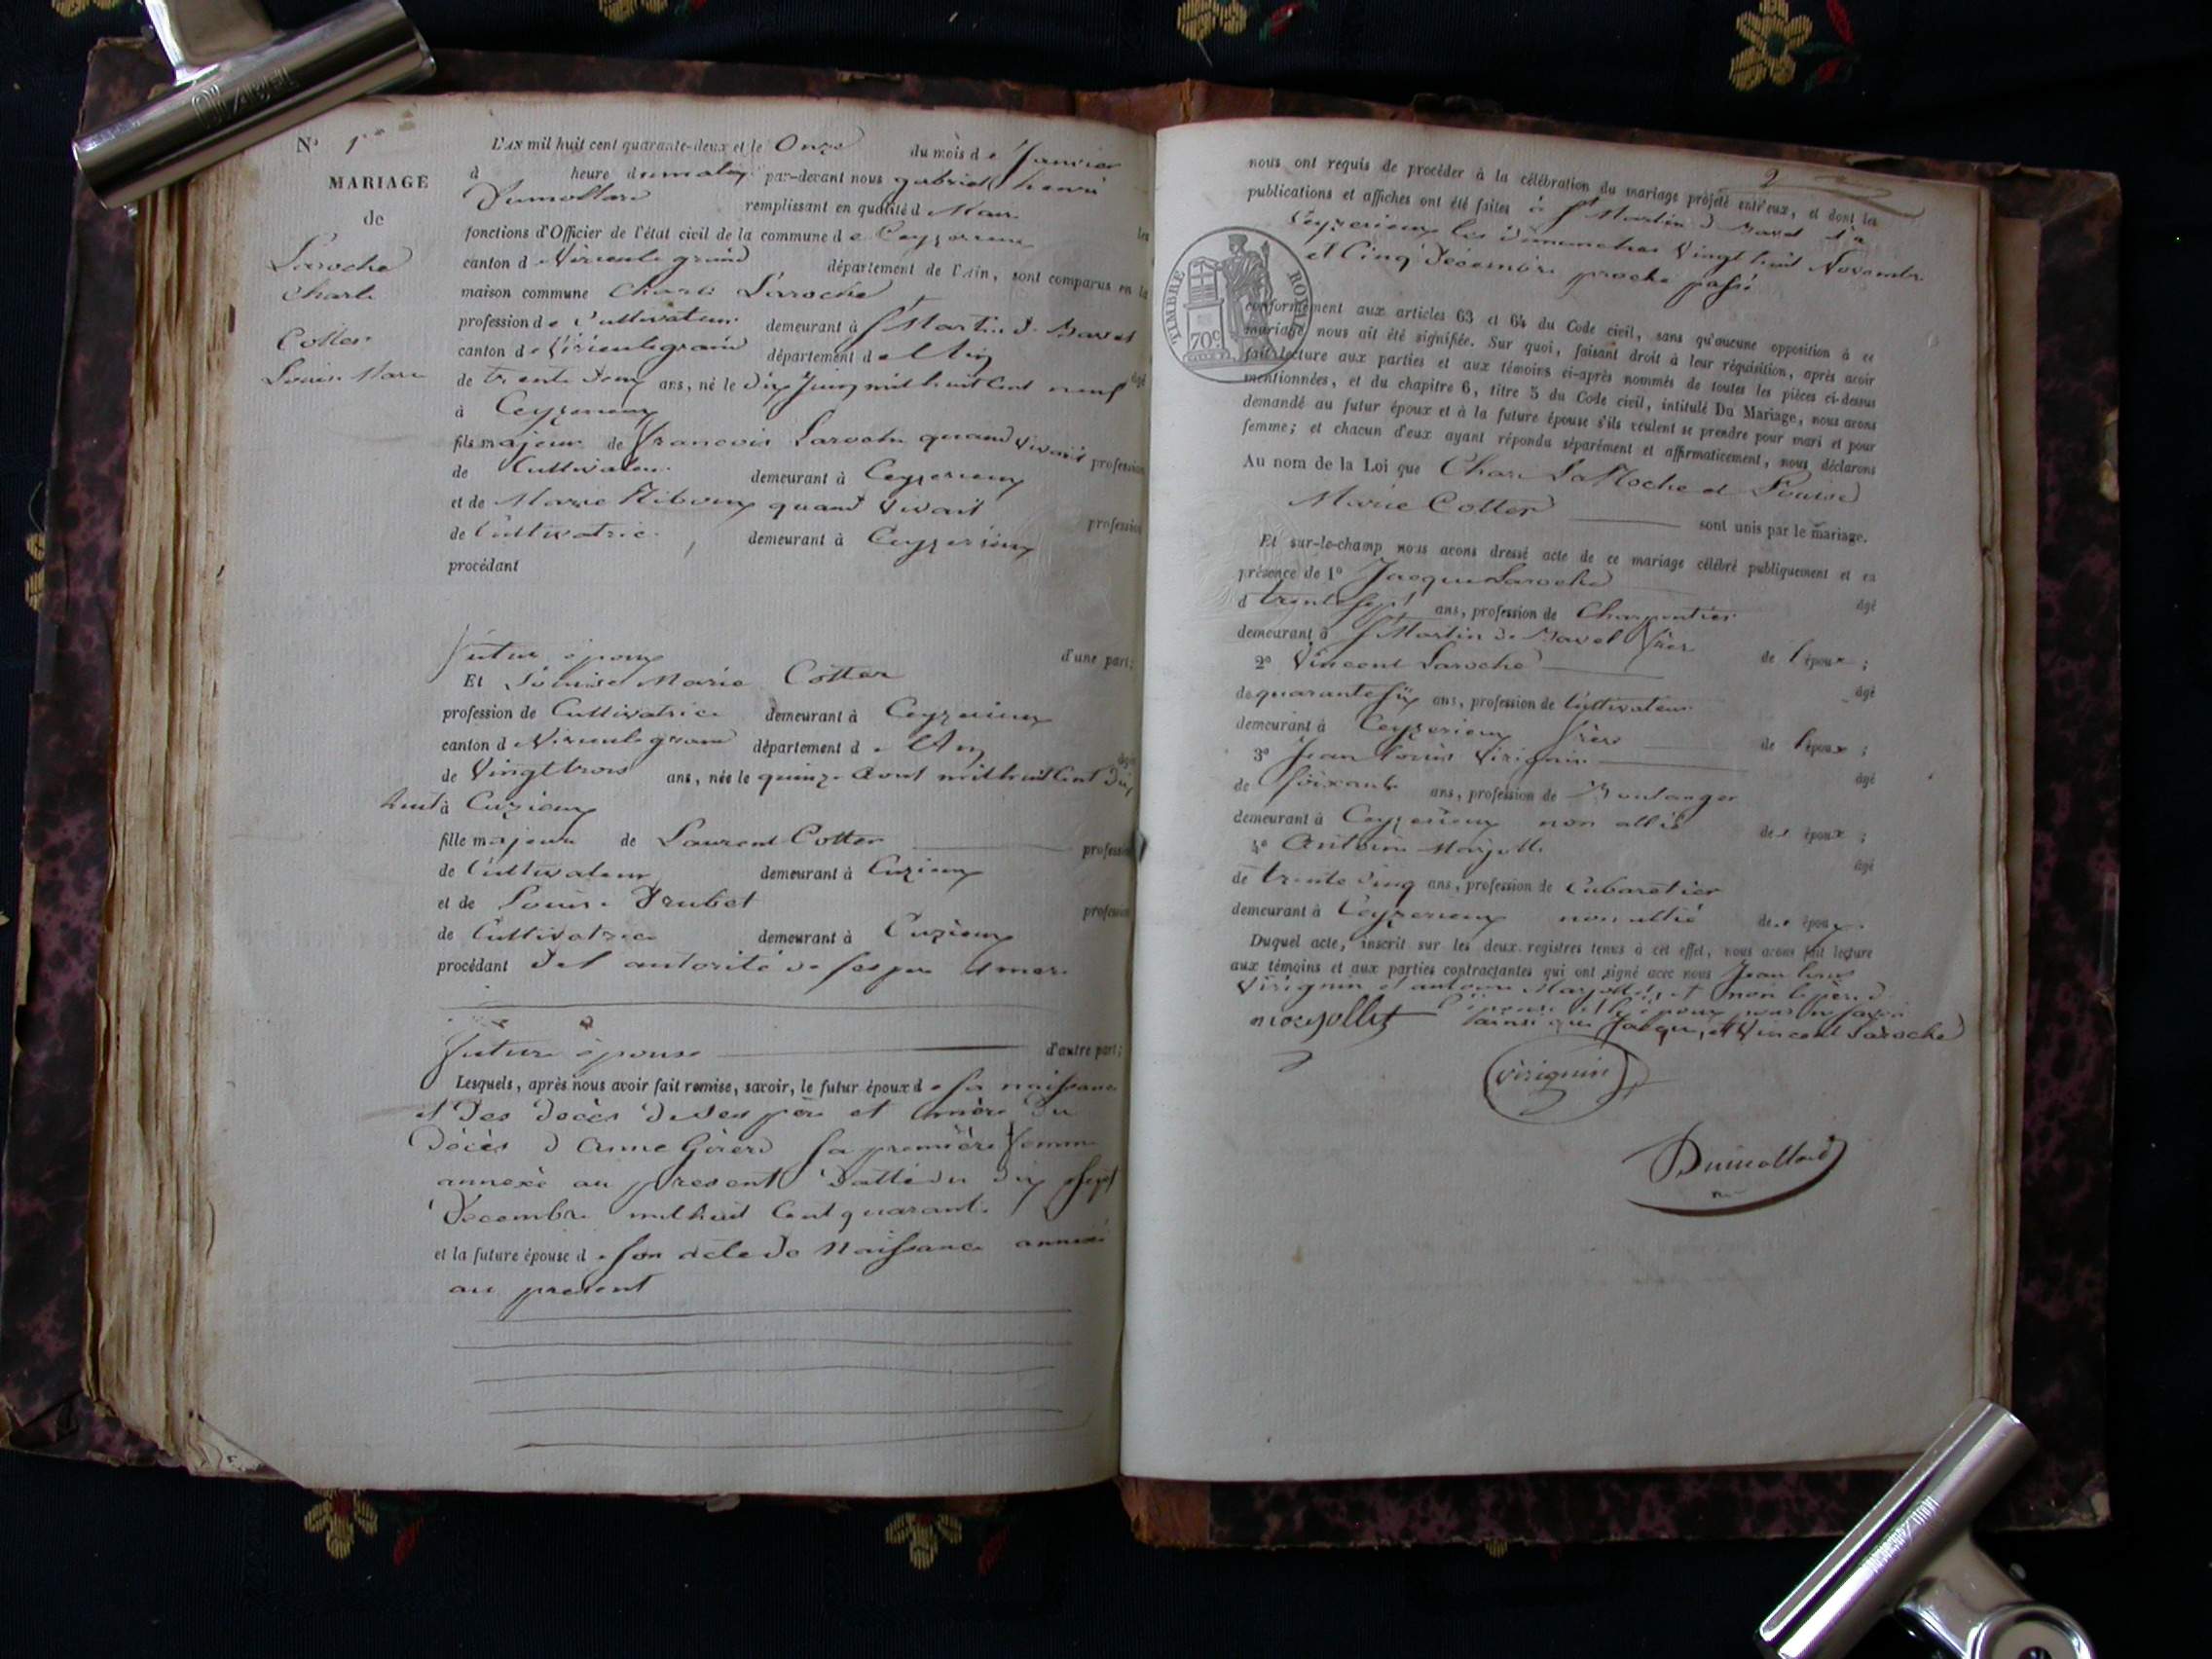 N° 1er
MARIAGE
de
Laroche
Charle
Cotter
Louise Marie
L'AN mil huit cent quarante-deux et le Onze du mois de Janvier
à heure du matin par-devant nous gabriel henri
Dumollard remplissant en qualité d Maire les
fonctions d'Officier de l'état civil de la commune de Ceyzerieux
canton d Virieulegrand département de l'Ain, sont comparus en la
maison commune Charle Laroche
profession de Cultivateur demeurant à St Martin de Bavel
canton de Virieulegrand département de l'Ain âgé
de trente deux ans, né le dix Juin mil huit Cent neuf
à Ceyzerieux
fils majeur de francois Laroche quand vivait profession
de Cultivateur demeurant à Ceyzerieux
et de Marie Riboux quand vivait profession
de Cultivatrice demeurant à Ceyzerieux
procédant
futur époux d'une part;
Et Louise Marie Cotter
profession de Cultivatrice demeurant à Ceyzerieux
canton d Virieulegrand département de l'Ain âgée
de Vingt trois ans, née le quinze aout mil huit Cent dix
huit à Cuzieux
fille majeure de Laurent Cotter profession
de Cultivateur demeurant à Cuzieux
et de Louise Trubet profession
de Cultivatrice demeurant à Cuzieux
procédant de l autorité de ses pere et mere
future épouse d'autre part;
Lesquels, après nous avoir fait remise, savoir, le futur époux de sa naissance
et des décès de ses père et mère du
décès d Anne Girerd sa première femme
annexé au present datté du dix sept
Decembre mil huit Cent quarante
et la future épouse de son acte de Naissance annexé
au present
2
nous ont requis de procéder à la célébration du mariage projeté entr'eux, et dont les
publications et affiches ont été faites à St Martin d Bavel et à
Ceyzerieux les dimanches Vingt huit Novembre
et Cinq Decembre proche passé
TIMBRE ROYAL
70c
conformément aux articles 63 et 64 du Code civil, sans qu'aucune opposition à ce
mariage nous ait été signifiée. Sur quoi, faisant droit à leur réquisition, après avoir
fait lecture aux parties et aux témoins ci-après nommés de toutes les pièces ci-dessus
mentionnées, et du chapitre 6, titre 5 du Code civil, intitulé Du Mariage, nous avons
demandé au futur époux et à la future épouse s'ils veulent se prendre pour mari et pour
femme; et chacun d'eux ayant répondu séparément et affirmativement, nous déclarons
Au nom de la Loi que Charle LaRoche et Louise
Marie Cotter sont unis par le mariage.
Et sur-le-champ nous avons dressé acte de ce mariage célébré publiquement et en
présence de 1° Jacque Laroche âgé
d trente sept ans, profession de Charpentier
demeurant à St Martin de Bavel frère de l'époux;
2° Vincent Laroche âgé
de quarante six ans, profession de Cultivateur
demeurant à Ceyzerieux frère de l'époux;
3° Jean Louis Virignin âgé
de soixante ans, profession de Boulanger
demeurant à Ceyzerieux non allié des époux;
4° Antoine Marjollet âgé
de trente Cinq ans, profession de Cabaretier
demeurant à Ceyzerieux non allié des époux.
Duquel acte, inscrit sur les deux registres tenus à cet effet, nous avons fait lecture
aux témoins et aux parties contractantes qui ont signé avec nous Jean Louis
Virignin et antoine Marjollet et non le père d
l'épouse et l'époux
ainsi que Jacque et Vincent Laroche
marjollet
virignin
Dumollard